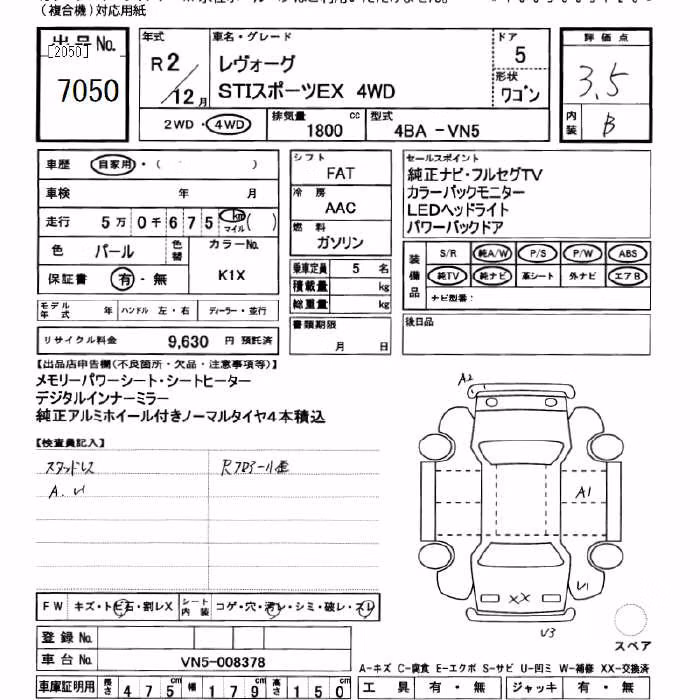 (複合機)対応用紙
出品No.
[2050]
7050
年式
R2/12月
車名・グレード
レヴォーグ
STIスポーツEX 4WD
ドア
5
形状
ワゴン
評価点
3.5
内装
B
2WD・4WD
排気量
1800 cc
型式
4BA-VN5
車歴 自家用・( )
車検 年 月
走行 5万0千675 km マイル ( )
色 パール 色替
カラーNo.
K1X
保証書 有・無
シフト
FAT
冷房
AAC
燃料
ガソリン
乗車定員 5 名
積載量 kg
総重量 kg
セールスポイント
純正ナビ・フルセグTV
カラーバックモニター
LEDヘッドライト
パワーバックドア
装備品
S/R 純A/W P/S P/W ABS
純TV 純ナビ 革シート 外ナビ エアB
ナビ型番:
モデル年式 年 ハンドル 左・右 ディーラー・並行
リサイクル料金 9,630 円 預託済
書類期限
月 日
後日品
【出品店申告欄(不良箇所・欠品・注意事項等)】
メモリーパワーシート・シートヒーター
デジタルインナーミラー
純正アルミホイール付きノーマルタイヤ4本積込
【検査員記入】
スタッドレス
A.U
A2
A1
U1
XX
U3
スペア
FW キズ・トビ石・割レX
シート内装 コゲ・穴・汚レ・シミ・破レ・スレ
登録No.
車台No. VN5-008378
A-キズ C-腐食 E-エクボ S-サビ U-凹ミ W-補修 XX-交換済
車庫証明用 長さ 475cm 幅 179cm 高さ 150cm
工具 有・無 ジャッキ 有・無